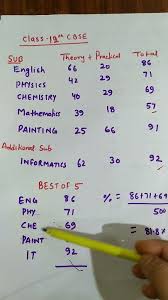 Class-12th CBSE
Sub Theory + Practical Total
English 66 20 86
PHYSICS 42 29 71
CHEMISTRY 40 29 69
Mathematics 39 18 57
PAINTING 25 66 91
Additional Sub
INFORMATICS 62 30 92
BEST OF 5
ENG 86 % = 86+71+69
PHY 71 500
CHE 69 = 81.8%
PAINT
IT 92